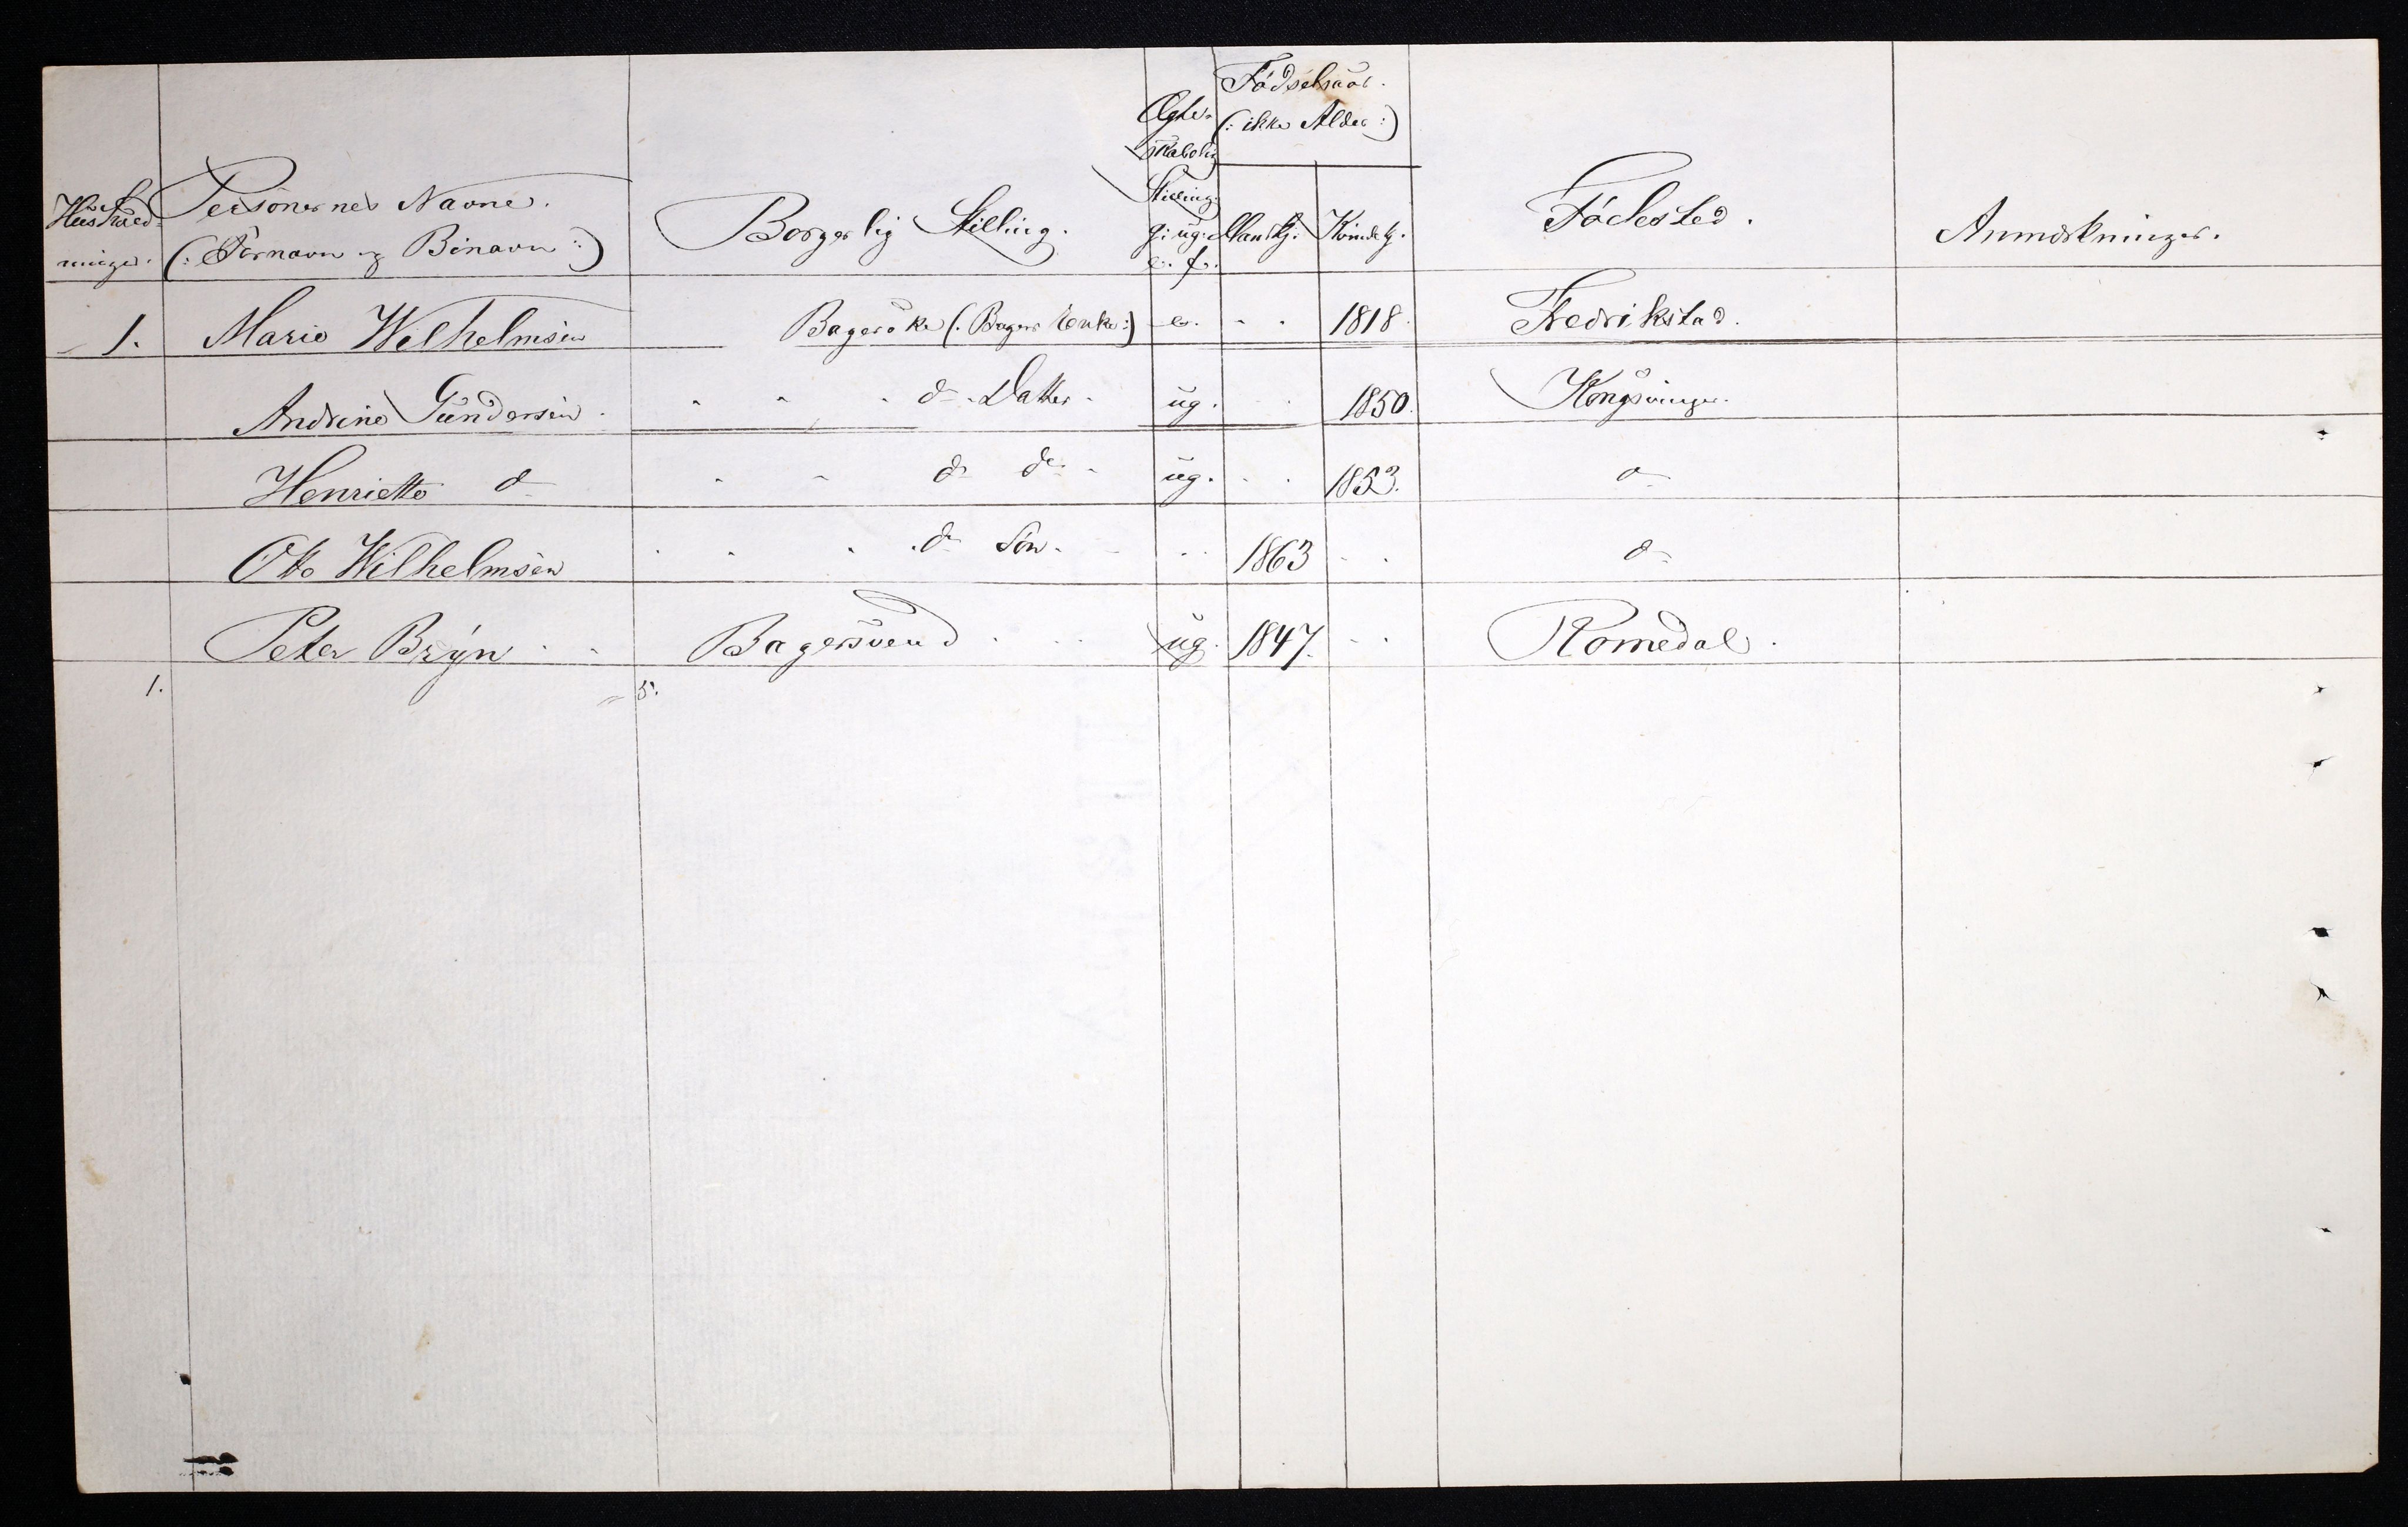 Huushold-
ninger.
Personernes Navne.
(: Fornavn og Binavn :)
Borgerlig Stilling.
Ægte-
skabelig
Stilling.
g. ug.
e. f.
Fødselsaar.
(: ikke Alder :)
Mandkj. Kvindekj.
Fødested.
Anmærkninger.
1. Marie Wilhelmsen Bagerske (: Bagers Enke :) e. - - 1818. Fredrikstad.
Andrine Gundersen. - - - do Datter - ug. - - 1850. Kongsvinger.
Henriette do - - do do - ug. - - 1853. do
Otto Wilhelmsen - - - do Søn. - - - 1863 - - do
Peter Bryn - - Bagersvend - - ug. 1847. - - Romedal.
1. 5.